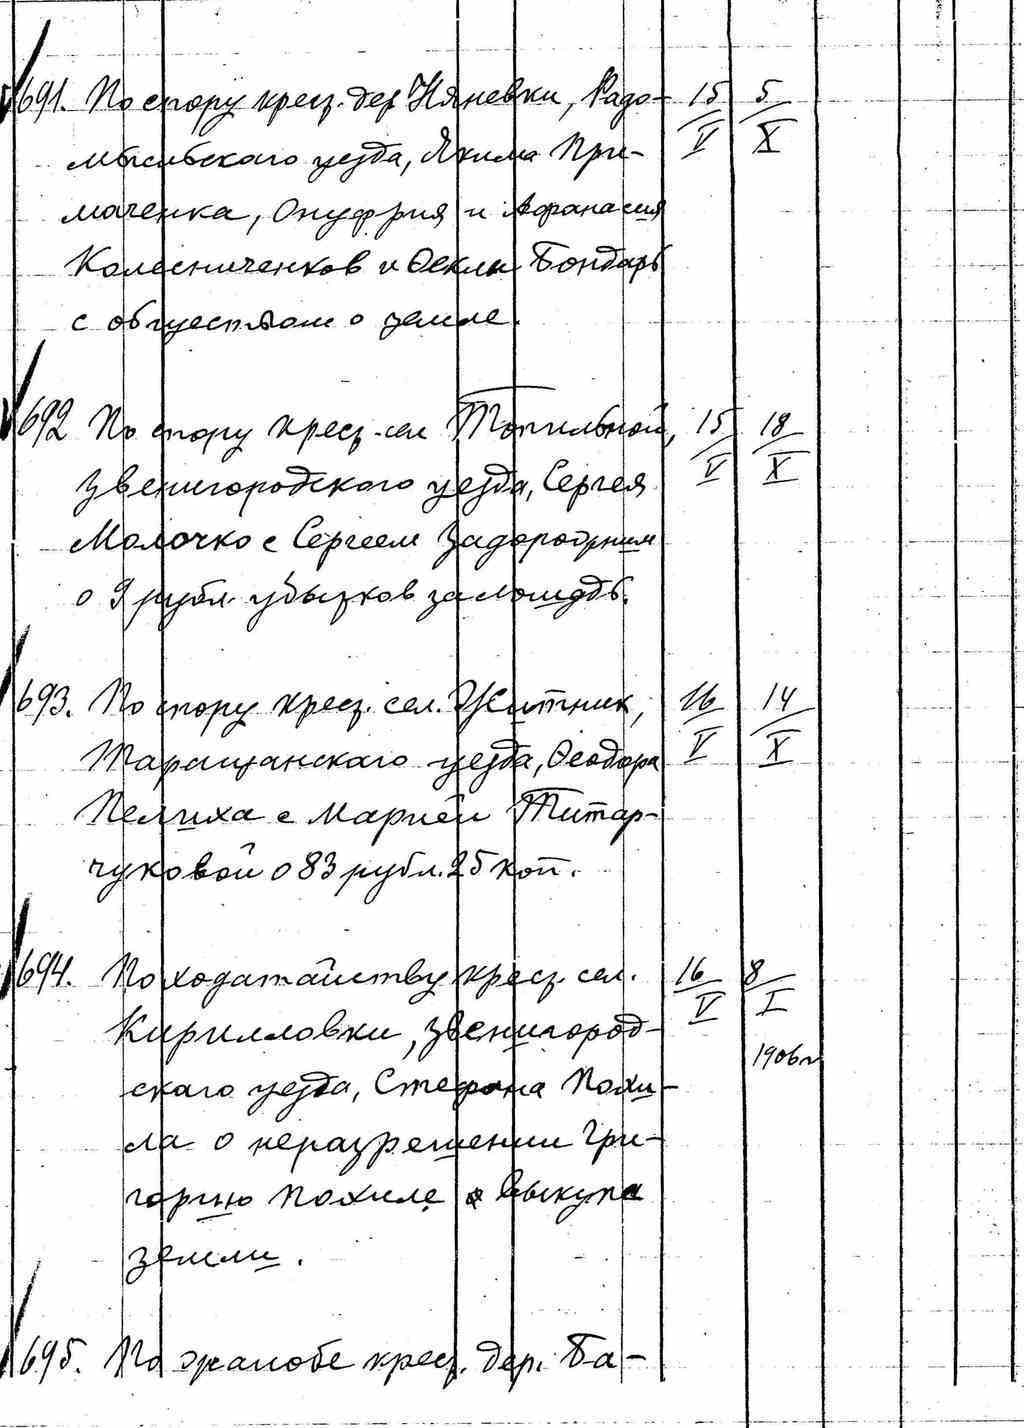 691. По спору крест. дер. Няневки, Радо- 15/V 5/X
мысльского уезда, Якима При-
маченка, Онуфрия и Афанасия
Колесниченков и Феклы Бондарь
с обществом о земле.
692 По спору крест. сел. Топильной, 15/V 18/X
Звенигородского уезда, Сергея
Молочко с Сергеем Задорожним
о 9 рубл. убытков за лошадь.
693. По спору крест. сел. Житник, 16/V 14/X
Таращанского уезда, Феодора
Пелиха с Марией Титар-
чуковой о 83 рубл. 25 коп.
694. По ходатайству крест. сел. 16/V 8/I
Кирилловки, Звенигород- 1906 г
ского уезда, Стефана Похи-
ла о неразрешении Гри-
горию Похиле выкупа
земли.
695. По жалобе крест. дер. Ба-